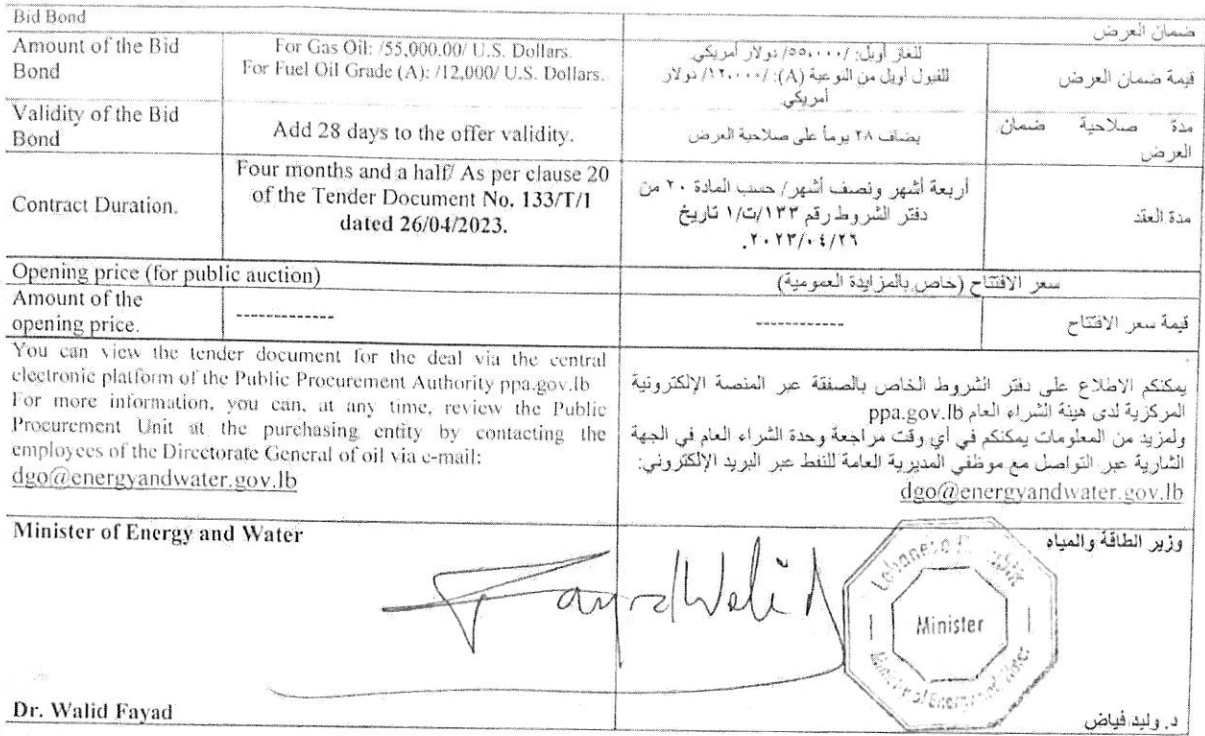 Bid Bond
ضمان العرض
Amount of the Bid
Bond
For Gas Oil: /55,000.00/ U.S. Dollars.
For Fuel Oil Grade (A): /12,000/ U.S. Dollars.
للغاز أويل: /٥٥،٠٠٠/ دولار أمريكي
للفيول أويل من النوعية (A): /١٢،٠٠٠/ دولار
أمريكي
قيمة ضمان العرض
Validity of the Bid
Bond
Add 28 days to the offer validity.
يضاف ٢٨ يوماً على صلاحية العرض
مدة صلاحية ضمان
العرض
Contract Duration.
Four months and a half/ As per clause 20
of the Tender Document No. 133/T/1
dated 26/04/2023.
أربعة أشهر ونصف أشهر/ حسب المادة ٢٠ من
دفتر الشروط رقم ١٣٣/ت/١ تاريخ
٢٠٢٣/٠٤/٢٦.
مدة العقد
Opening price (for public auction)
سعر الافتتاح (خاص بالمزايدة العمومية)
Amount of the
opening price.
-------------
------------
قيمة سعر الافتتاح
You can view the tender document for the deal via the central
electronic platform of the Public Procurement Authority ppa.gov.lb
For more information, you can, at any time, review the Public
Procurement Unit at the purchasing entity by contacting the
employees of the Directorate General of oil via e-mail:
dgo@energyandwater.gov.lb
يمكنكم الاطلاع على دفتر الشروط الخاص بالصفقة عبر المنصة الإلكترونية
المركزية لدى هيئة الشراء العام ppa.gov.lb
ولمزيد من المعلومات يمكنكم في أي وقت مراجعة وحدة الشراء العام في الجهة
الشارية عبر التواصل مع موظفي المديرية العامة للنفط عبر البريد الإلكتروني:
dgo@energyandwater.gov.lb
Minister of Energy and Water
وزير الطاقة والمياه
Fayad Walid
Lebanese Republic
Minister
Ministry of Energy and Water
Dr. Walid Fayad
د. وليد فياض